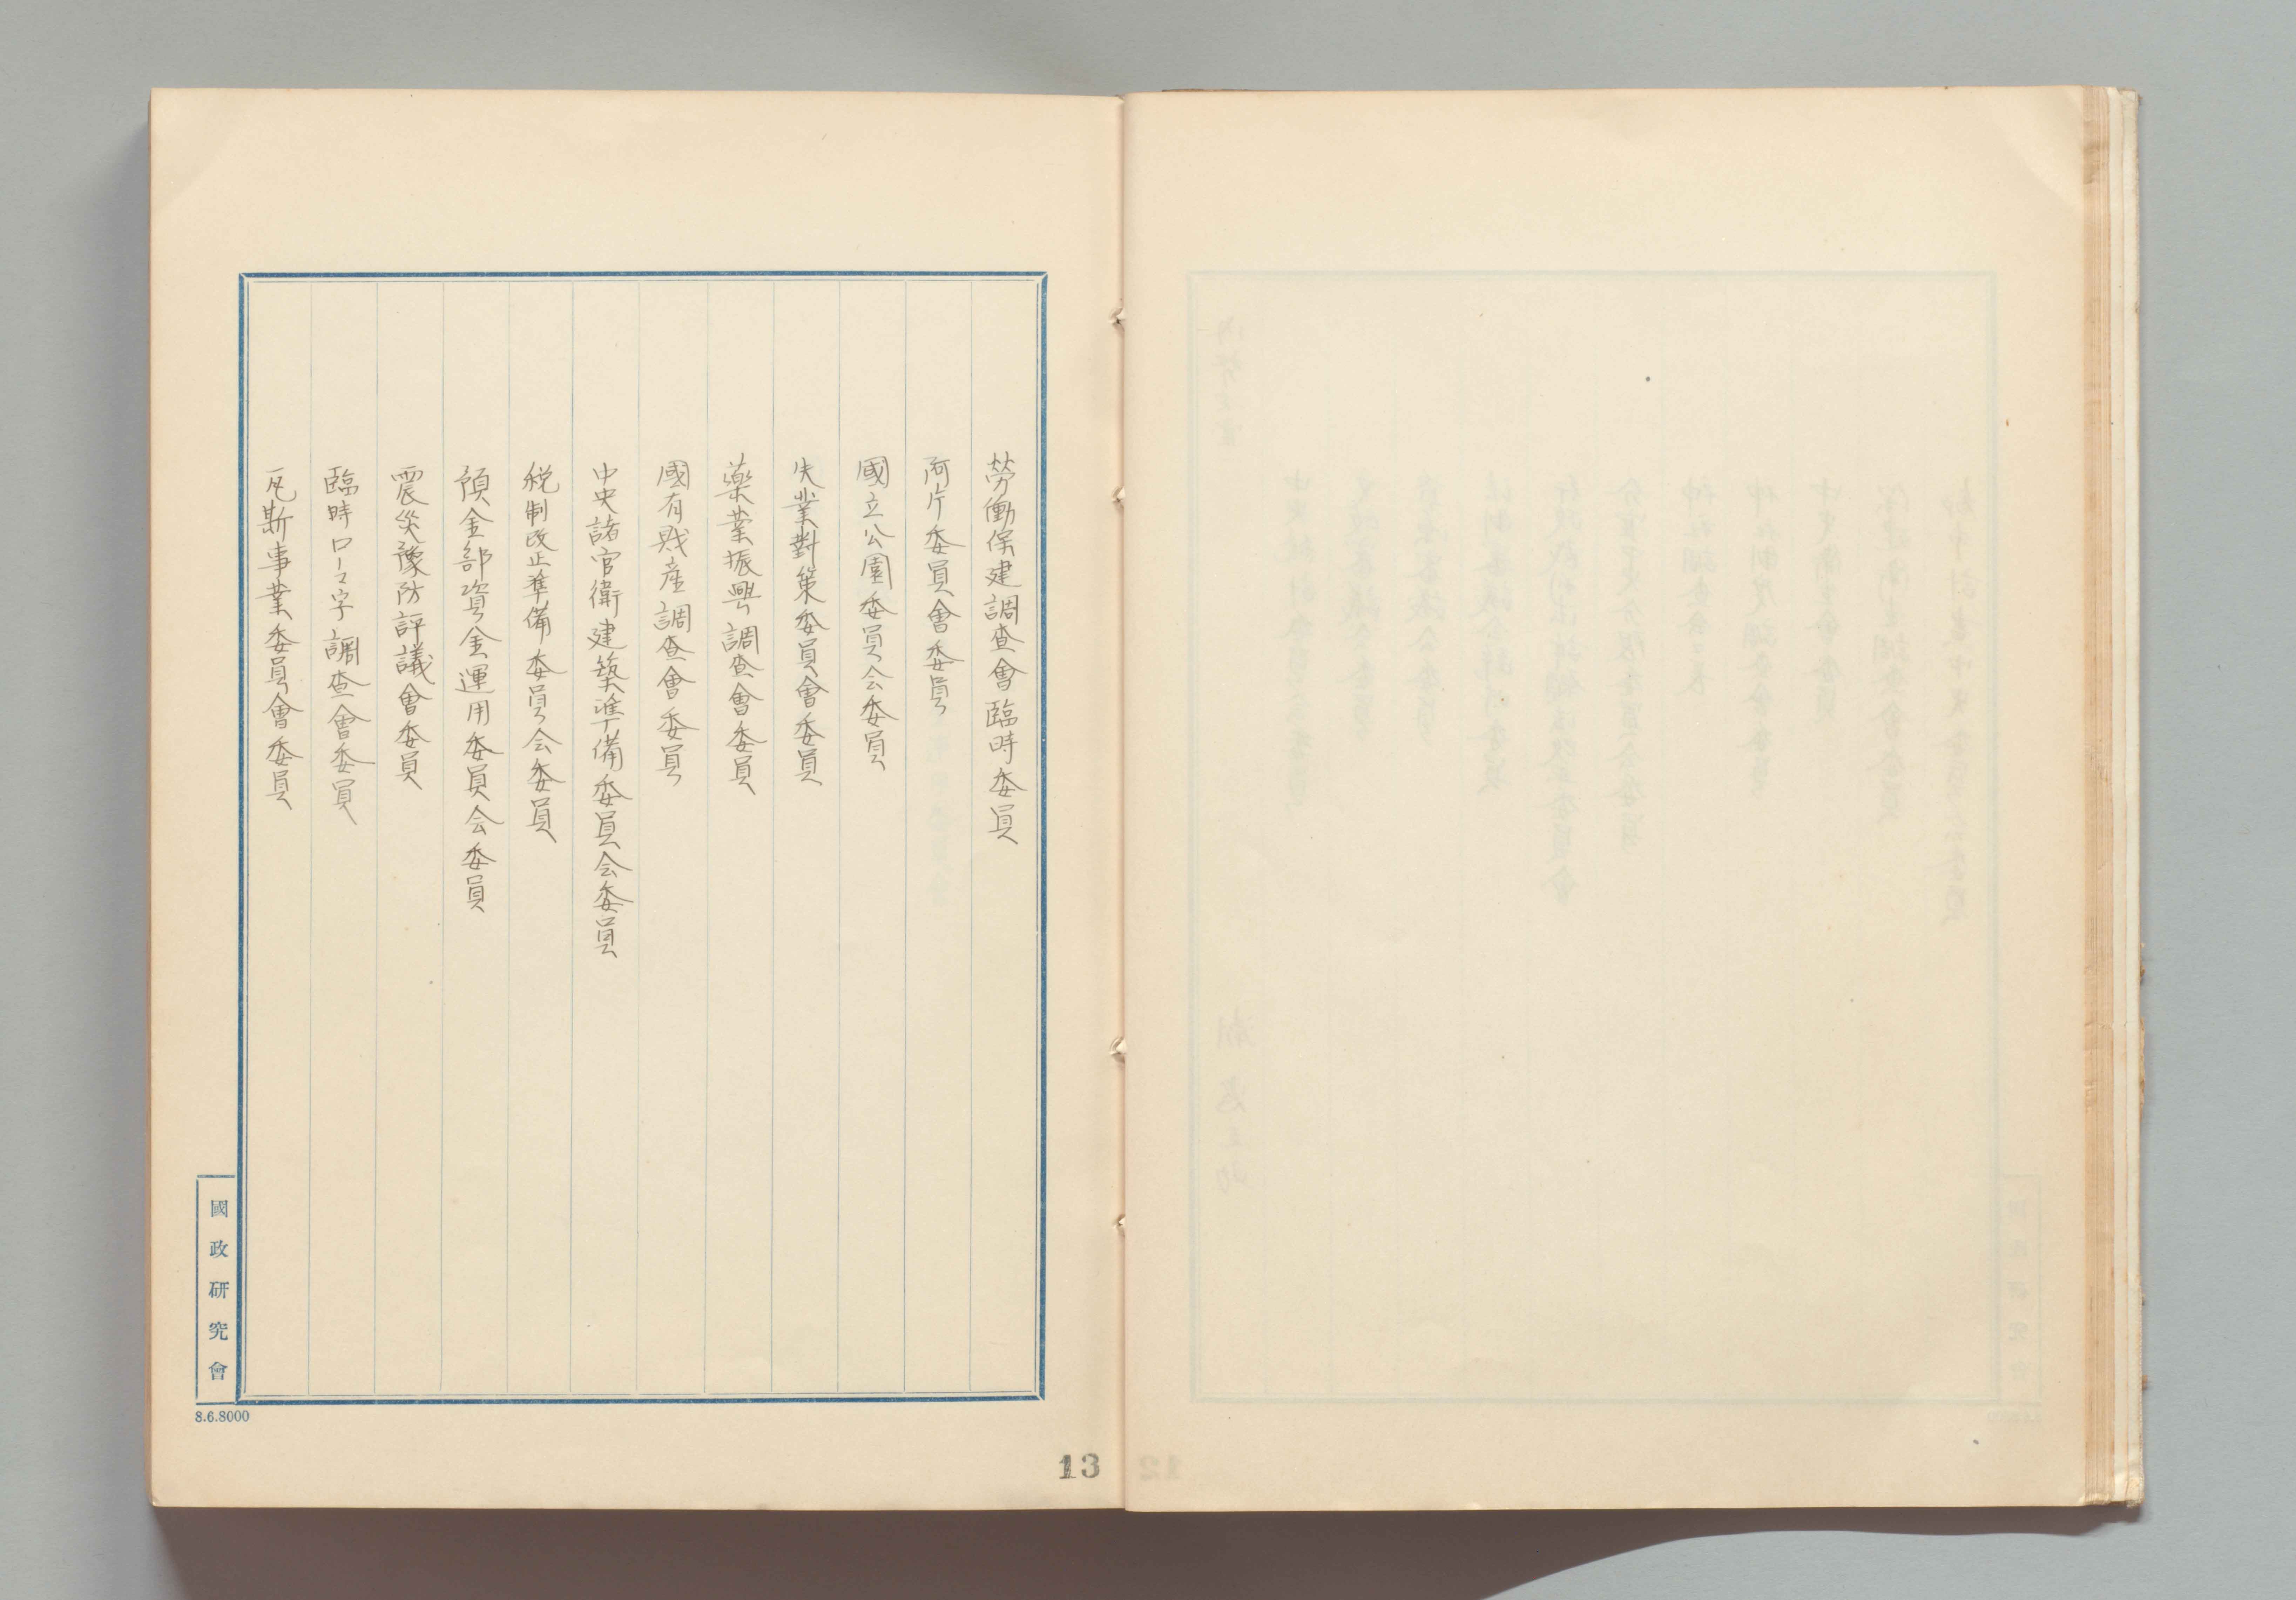 勞働保建調査會臨時委員
阿片委員會委員
國立公園委員会委員
失業對策委員會委員
藥業振興調査會委員
國有財産調査會委員
中央諸官衛建築準備委員会委員
税制改正準備委員会委員
預金部資金運用委員会委員
震災豫防評議會委員
臨時ローマ字調査會委員
瓦斯事業委員會委員
國政研究會
8.6.8000
13